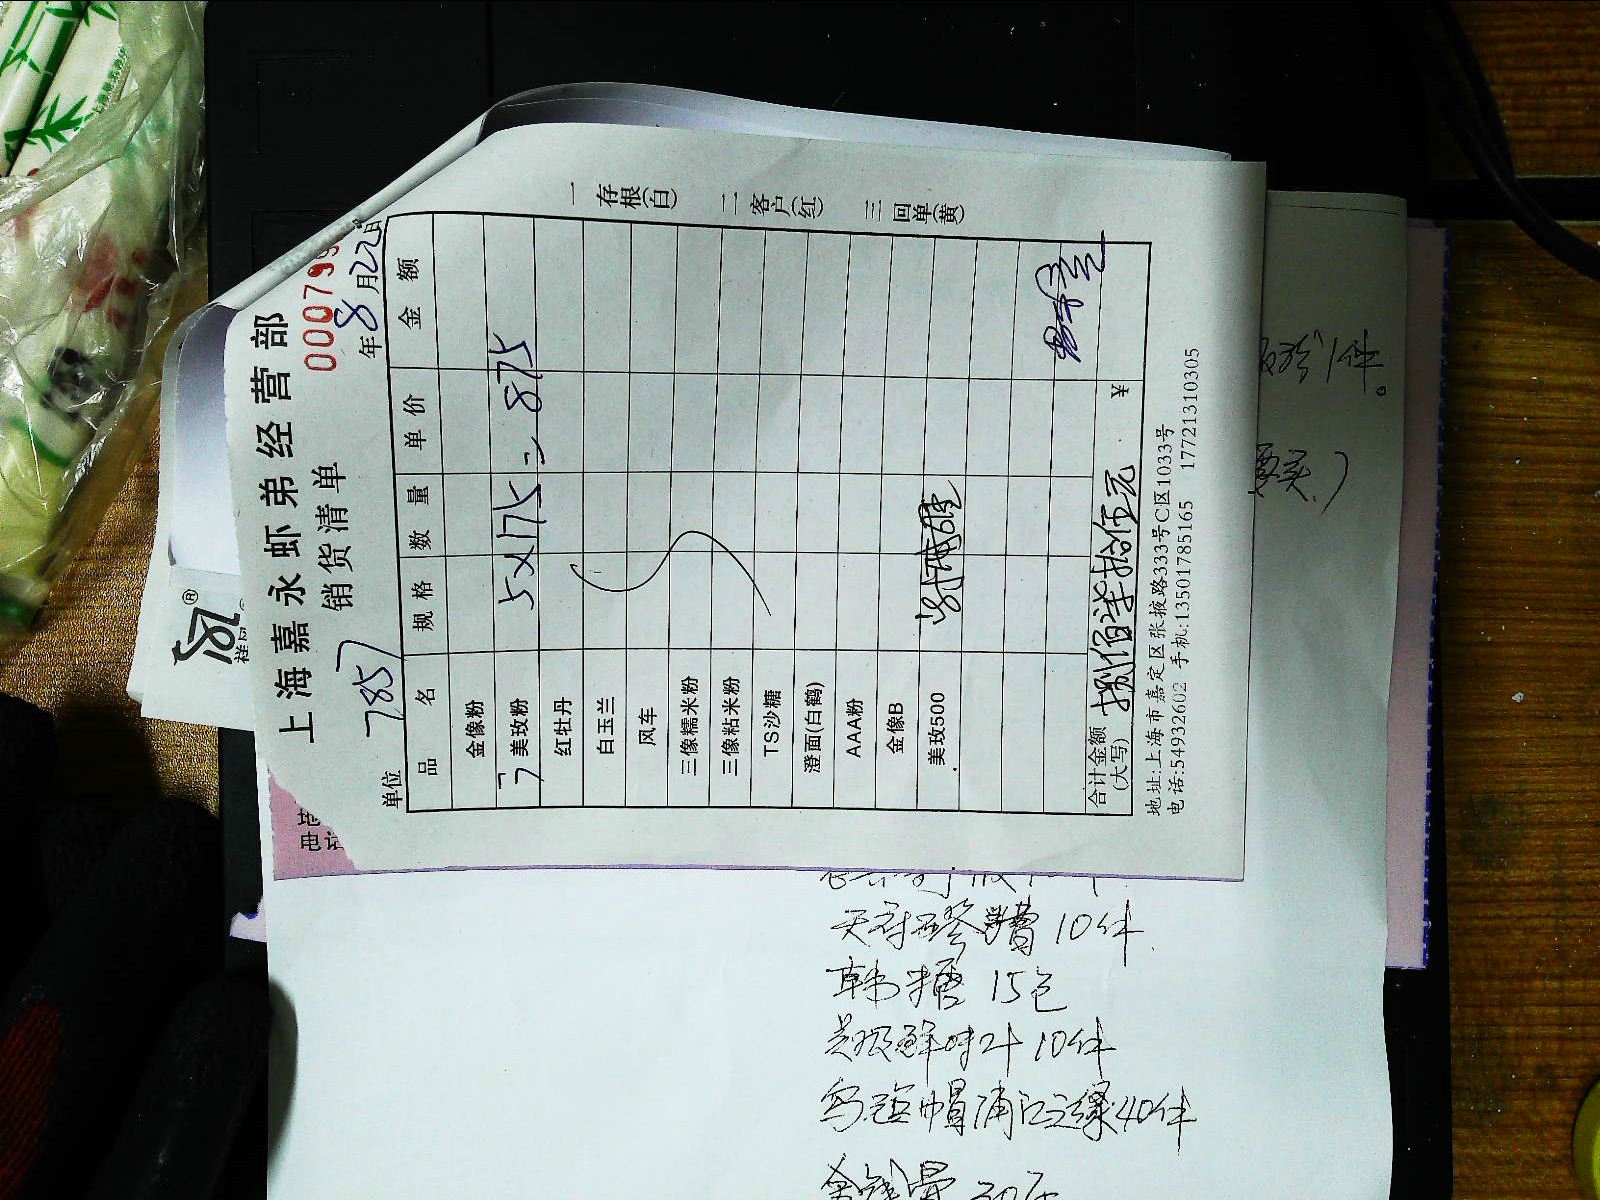 上海嘉永虾弟经营部
销货清单
000799
单位 7857
年8月22日
品名 规格 数量 单价 金额
金像粉
7美玫粉 5×175=875
红牡丹
白玉兰
风车
三像糯米粉
三像粘米粉
TS沙糖
澄面(白鹤)
AAA粉
金像B
美玫500
合计金额(大写) 捌佰柒拾伍元 ¥
地址:上海市嘉定区张掖路333号C区1033号
电话:54932602 手机:13501785165 17721310305
一存根(白)
二客户(红)
三回单(黄)
®
1件。
10件
韩糖 15包
鲜味汁 10件
乌毡帽浦江之缘40件